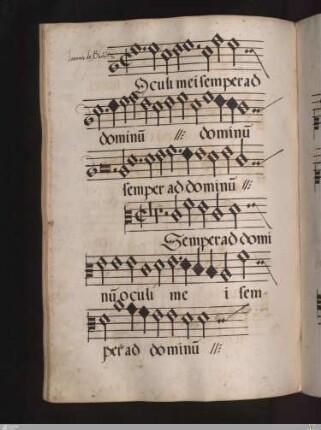 Oculi mei semper ad
dominū dominū
semper ad dominū
Semper ad domi
nū, oculi me i sem-
per ad dominū